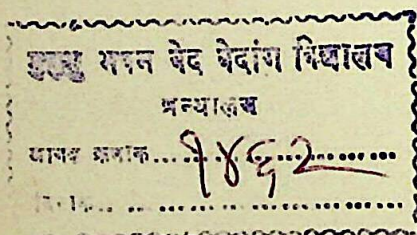 मुमुक्षु भवन वेद वेदांग विद्यालय
ग्रन्थालय
आगत क्रमांक....१४६२............
दिनांक.. .. ............................